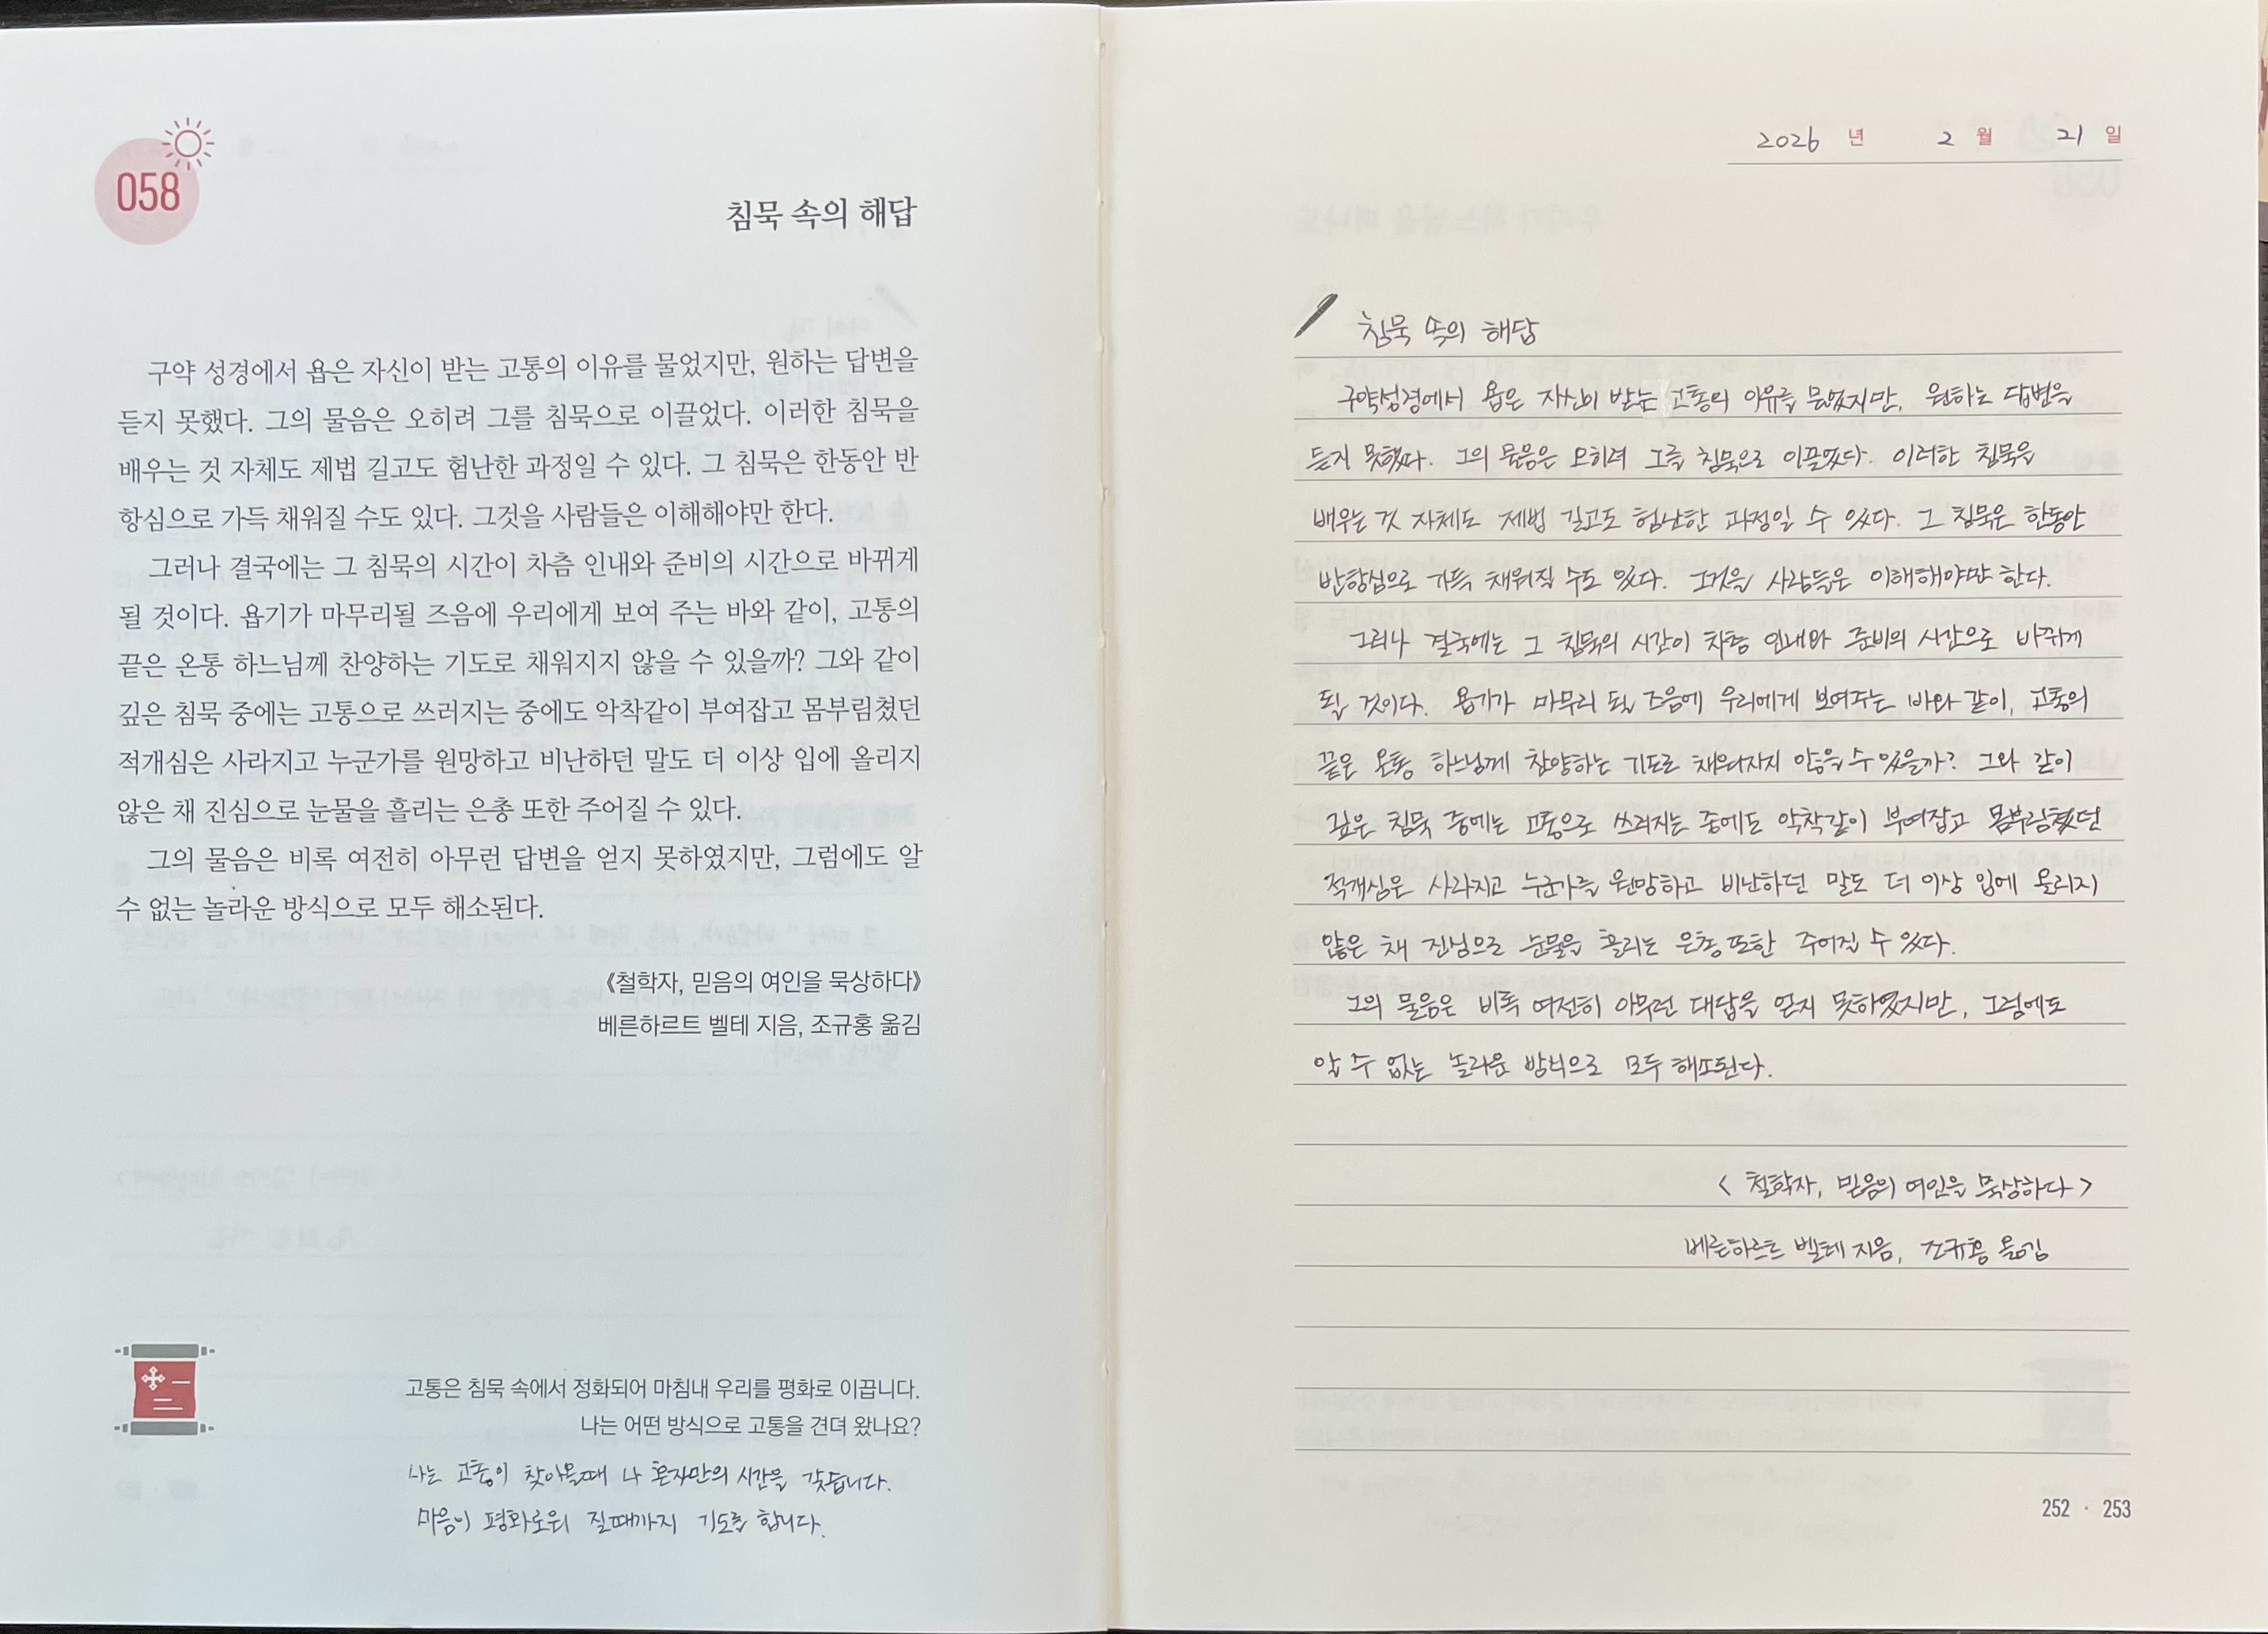 058
침묵 속의 해답
구약 성경에서 욥은 자신이 받는 고통의 이유를 물었지만, 원하는 답변을
듣지 못했다. 그의 물음은 오히려 그를 침묵으로 이끌었다. 이러한 침묵을
배우는 것 자체도 제법 길고도 험난한 과정일 수 있다. 그 침묵은 한동안 반
항심으로 가득 채워질 수도 있다. 그것을 사람들은 이해해야만 한다.
그러나 결국에는 그 침묵의 시간이 차츰 인내와 준비의 시간으로 바뀌게
될 것이다. 욥기가 마무리될 즈음에 우리에게 보여 주는 바와 같이, 고통의
끝은 온통 하느님께 찬양하는 기도로 채워지지 않을 수 있을까? 그와 같이
깊은 침묵 중에는 고통으로 쓰러지는 중에도 악착같이 부여잡고 몸부림쳤던
적개심은 사라지고 누군가를 원망하고 비난하던 말도 더 이상 입에 올리지
않은 채 진심으로 눈물을 흘리는 은총 또한 주어질 수 있다.
그의 물음은 비록 여전히 아무런 답변을 얻지 못하였지만, 그럼에도 알
수 없는 놀라운 방식으로 모두 해소된다.
《철학자, 믿음의 여인을 묵상하다》
베른하르트 벨테 지음, 조규홍 옮김
고통은 침묵 속에서 정화되어 마침내 우리를 평화로 이끕니다.
나는 어떤 방식으로 고통을 견뎌 왔나요?
나는 고통이 찾아올때 나 혼자만의 시간을 갖습니다.
마음이 평화로워 질때까지 기도를 합니다.
2026 년 2 월 21 일
침묵 속의 해답
구약성경에서 욥은 자신이 받는 고통의 이유를 물었지만, 원하는 답변을
듣지 못했다. 그의 물음은 오히려 그를 침묵으로 이끌었다. 이러한 침묵을
배우는 것 자체도 제법 길고도 험난한 과정일 수 있다. 그 침묵은 한동안
반항심으로 가득 채워질 수도 있다. 그것을 사람들은 이해해야만 한다.
그러나 결국에는 그 침묵의 시간이 차츰 인내와 준비의 시간으로 바뀌게
될 것이다. 욥기가 마무리 될 즈음에 우리에게 보여주는 바와 같이, 고통의
끝은 온통 하느님께 찬양하는 기도로 채워지지 않을 수 있을까? 그와 같이
깊은 침묵 중에는 고통으로 쓰러지는 중에도 악착같이 부여잡고 몸부림쳤던
적개심은 사라지고 누군가를 원망하고 비난하던 말도 더 이상 입에 올리지
않은 채 진심으로 눈물을 흘리는 은총 또한 주어질 수 있다.
그의 물음은 비록 여전히 아무런 대답을 얻지 못하였지만, 그럼에도
알 수 없는 놀라운 방식으로 모두 해소된다.
< 철학자, 믿음의 여인을 묵상하다 >
베른하르트 벨테 지음, 조규홍 옮김
252 · 253